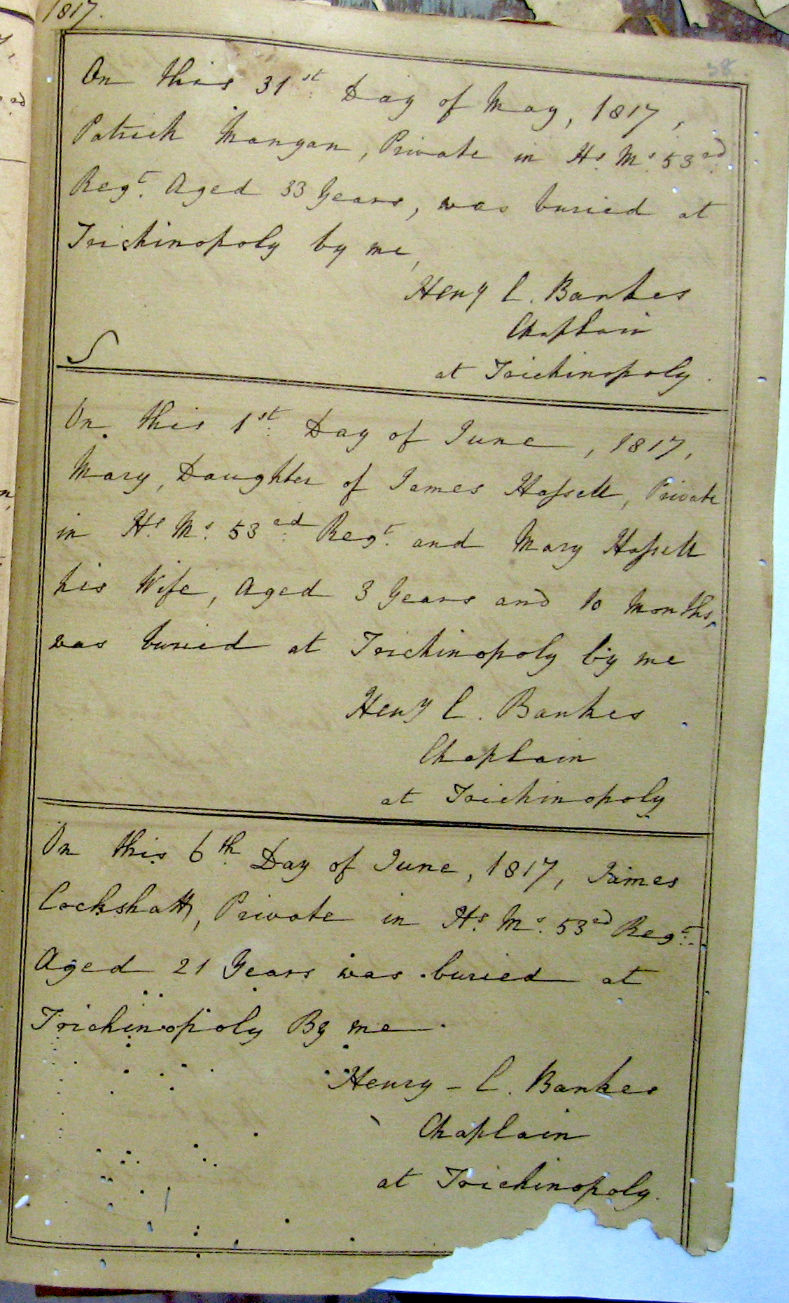 1817.
38
On this 31st Day of May, 1817,
Patrick Mangan, Private in Hs. Ms. 53rd
Regt. Aged 33 Years, was buried at
Trichinopoly by me,
Heny C. Bankes
Chaplain
at Trichinopoly.
On this 1st Day of June, 1817,
Mary, Daughter of James Hassell, Private
in Hs. Ms. 53rd Regt. and Mary Hassell
his Wife, Aged 3 Years and 10 Months,
was buried at Trichinopoly by me
Heny C. Bankes
Chaplain
at Trichinopoly
On this 6th Day of June, 1817, James
Cockshatt, Private in Hs. Ms. 53rd Regt.
Aged 21 Years was buried at
Trichinopoly By me.
Henry - C. Bankes
Chaplain
at Trichinopoly.